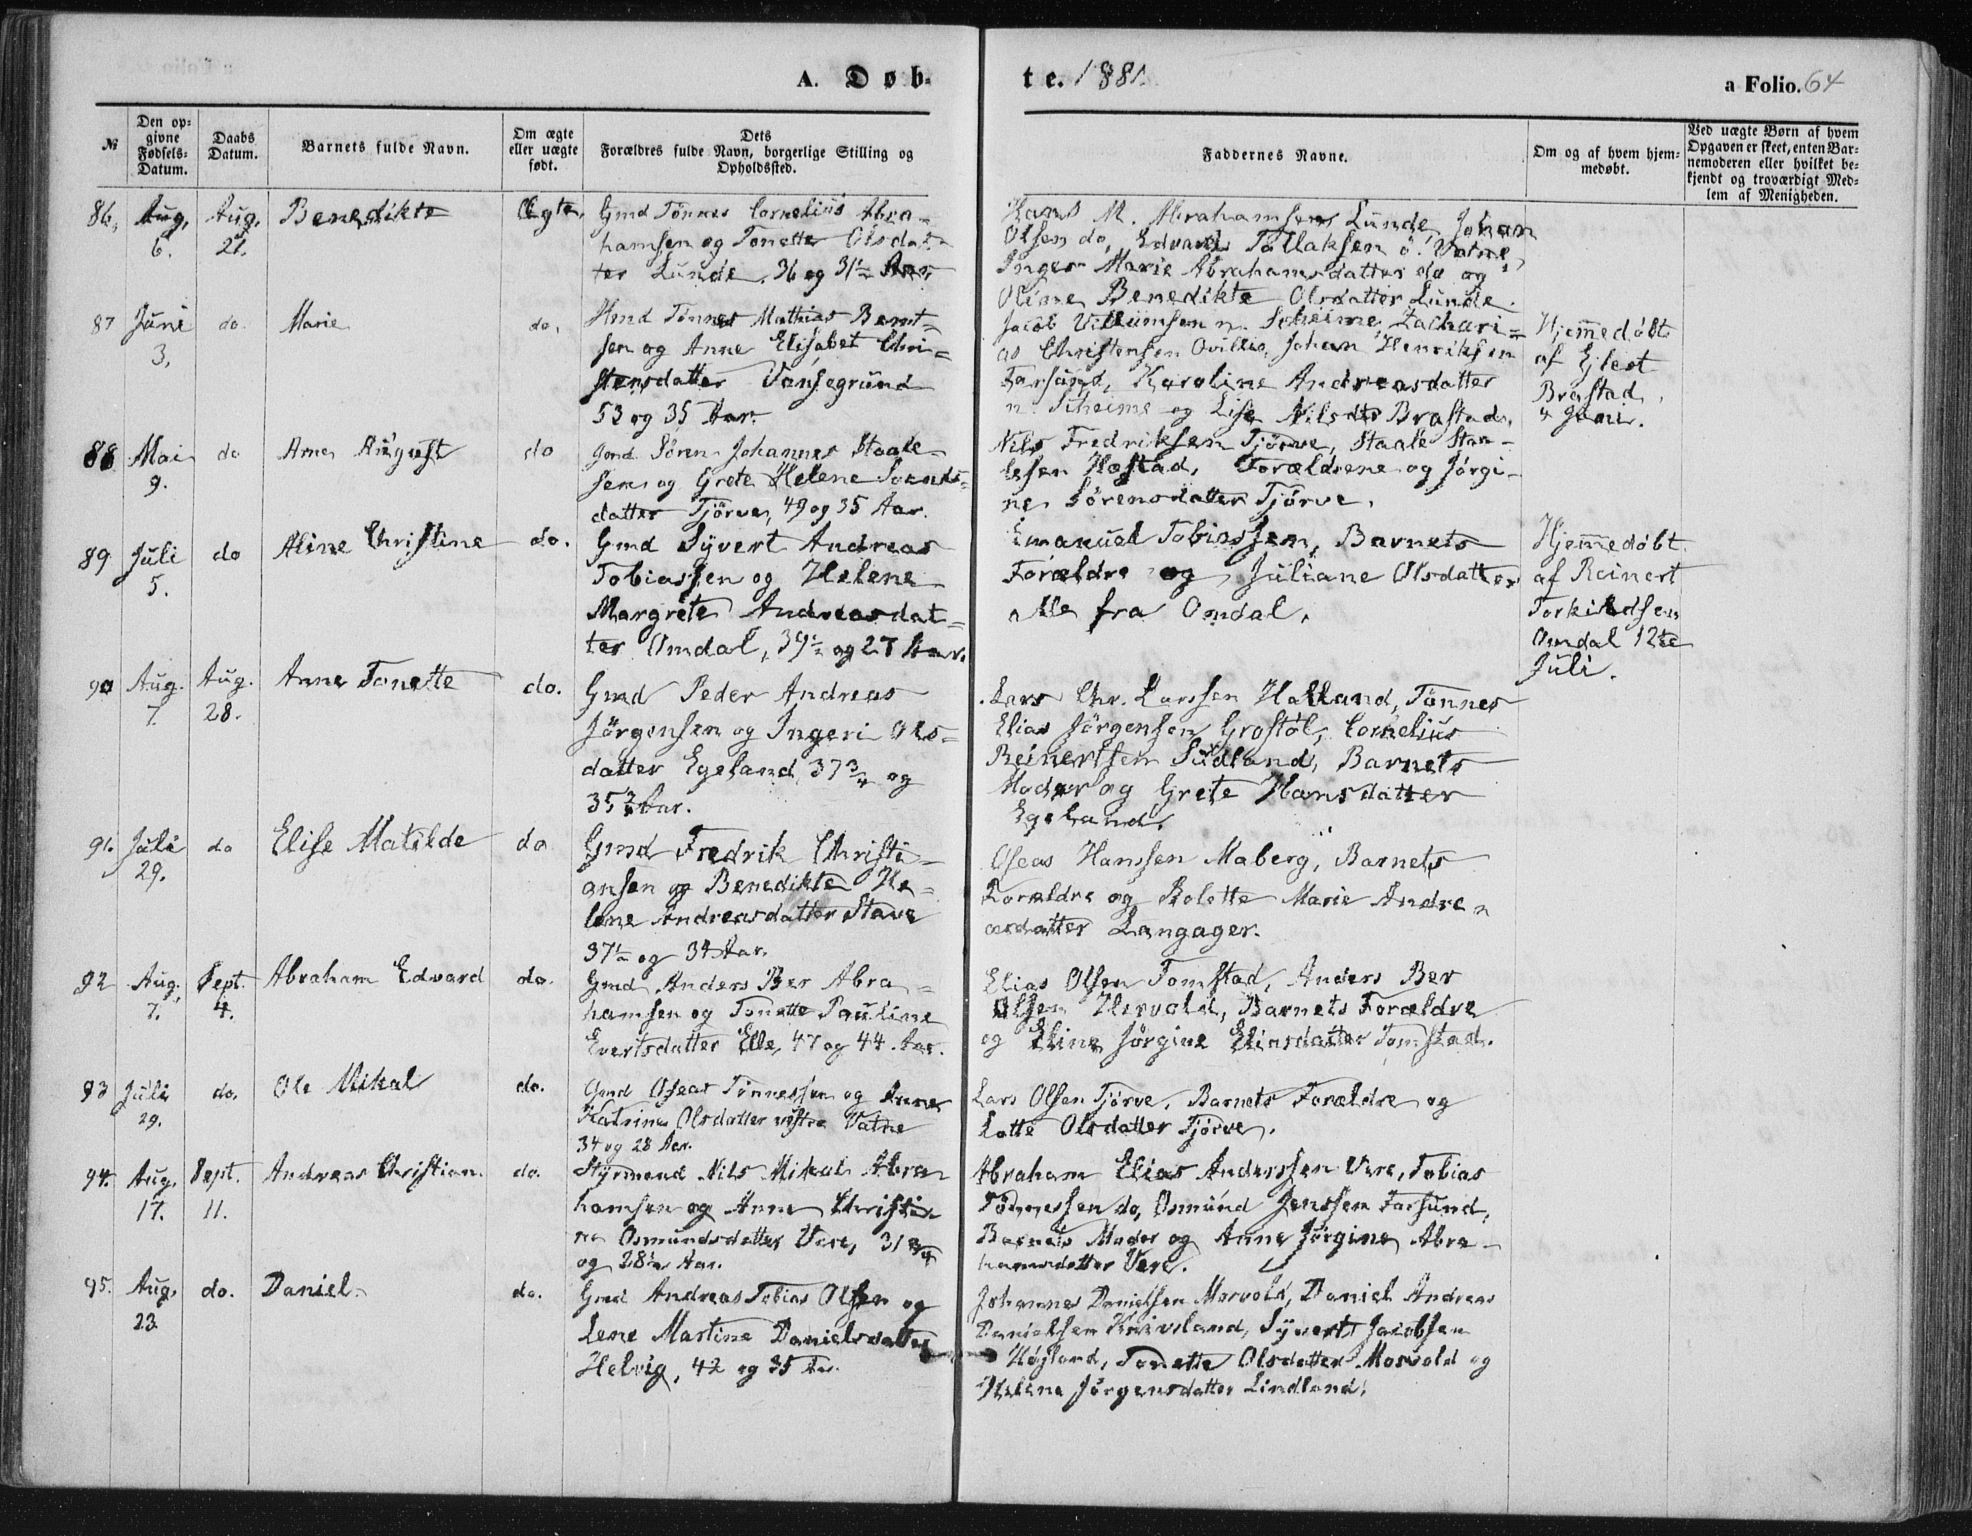 A. Døb-
te. 1881.
a Folio. 64
№
Den op-
givne
Fødsels-
Datum.
Daabs
Datum.
Barnets fulde Navn.
Om ægte
eller uægte
født.
Dets
Forældres fulde Navn, borgerlige Stilling og
Opholdssted.
Faddernes Navne.
Om og af hvem hjem-
medøbt.
Ved uægte Børn af hvem
Opgaven er skeet, enten Bar-
nemoderen eller hvilket be-
kjendt og troværdigt Med-
lem af Menigheden.
86. Aug. 6. Aug. 21. Benedikte Ægte,
Gmd Tønnes Cornelius Abra-
hamsen og Tonette Olsdat-
ter Lunde. 36 og 31½ Aar.
Hans M. Abrahamsen, Lunde, Johan
Olsen do, Edvard Tollaksen ö. Vatne,
Inger Marie Abrahamsdatter do og
Oline Benedikte Olsdatter Lunde.
87 Juni 3, do. Marie do,
Hmd Tønnes Mathias Bernt-
sen og Anne Elisabet Chri-
stensdatter Vansegrund
53 og 35 Aar.
Jacob Villumsen n. Scheime, Zachari-
as Christensen Ovillie, Johan Henriksen
Farsund, Karoline Andreasdatter
n. Scheime og Lise Nilsdtr Brastad.
Hjemmedøbt
af Glest
Brastad,
4 Juni.
88 Mai 9. do Arne August do
Gmd Sören Johannes Staale-
sen og Grete Helene Svends-
datter Tjörve, 49 og 35 Aar.
Nils Fredriksen Tjörve, Staale Staa-
lesen Hastad, Forældrene og Jörgi-
ne Sörensdatter Tjörve.
89 Juli 5. do Aline Christine do.
Gmd Syvert Andreas
Tobiassen og Helene
Margrete Andreasdat-
ter Omdal, 39½ og 27 Aar.
Emanuel Tobiassen, Barnets
Forældre og Juliane Olsdatter
alle fra Omdal.
Hjemmedøbt
af Reinert
Torkildsen
Omdal 12te
Juli.
90 Aug. 7. Aug. 28. Anne Tonette do.
Gmd Peder Andreas
Jörgensen og Ingeri Ols-
datter Egeland, 37¾ og
35¾ Aar.
Lars Chr. Larssen Halland, Tønnes
Elias Jörgensen Grostøl, Cornelius
Reinertsen Sudland, Barnets
Moder og Grete Hansdatter
Egeland.
91. Juli 29. do Elise Matilde do
Gmd Fredrik Christi-
ansen og Benedikte He-
lene Andreasdatter Stave
37½ og 34 Aar.
Oseas Hanssen Maberg, Barnets
Forældre og Bolette Marie Andre-
asdatter Langager.
92 Aug. 7. Sept. 4. Abraham Edvard do.
Gmd Anders Ber Abra-
hamsen og Tonette Pauline
Evertsdatter Elle, 47 og 44 Aar.
Elias Olsen Tomstad, Anders Ber
Olsen Hervold, Barnets Forældre
og Eline Jörgine Eliasdatter Tomstad.
93 Juli 29. do. Ole Mikal do.
Gmd Oseas Tönnessen og Anne
Katrine Olsdatter vestre Vatne
34 og 28 Aar.
Lars Olsen Tjörve, Barnets Forældre og
Lotte Olsdatter Tjörve.
94. Aug. 17. Sept. 11. Andreas Christian. do.
Styrmand Nils Mikal Abra
hamsen og Anne Christi
ne Osmundsdatter Vere, 31¾
og 28½ Aar.
Abraham Elias Anderssen Vere, Tobias
Tönnessen do, Osmund Jenssen Farsund,
Barnets Moder og Anne Jörgine Abra-
hamsdatter Vere.
95. Aug. 23 do. Daniel do.
Gmd Andreas Tobias Olsen og
Lene Martine Danielsdatter
Helvig, 42 og 35 Aar.
Johannes Danielsen Morvold, Daniel Andreas
Danielsen Knivsland, Syvert Jacobsen
Højland, Tonette Olsdatter Morvold og
Helene Jörgensdatter Lindland.